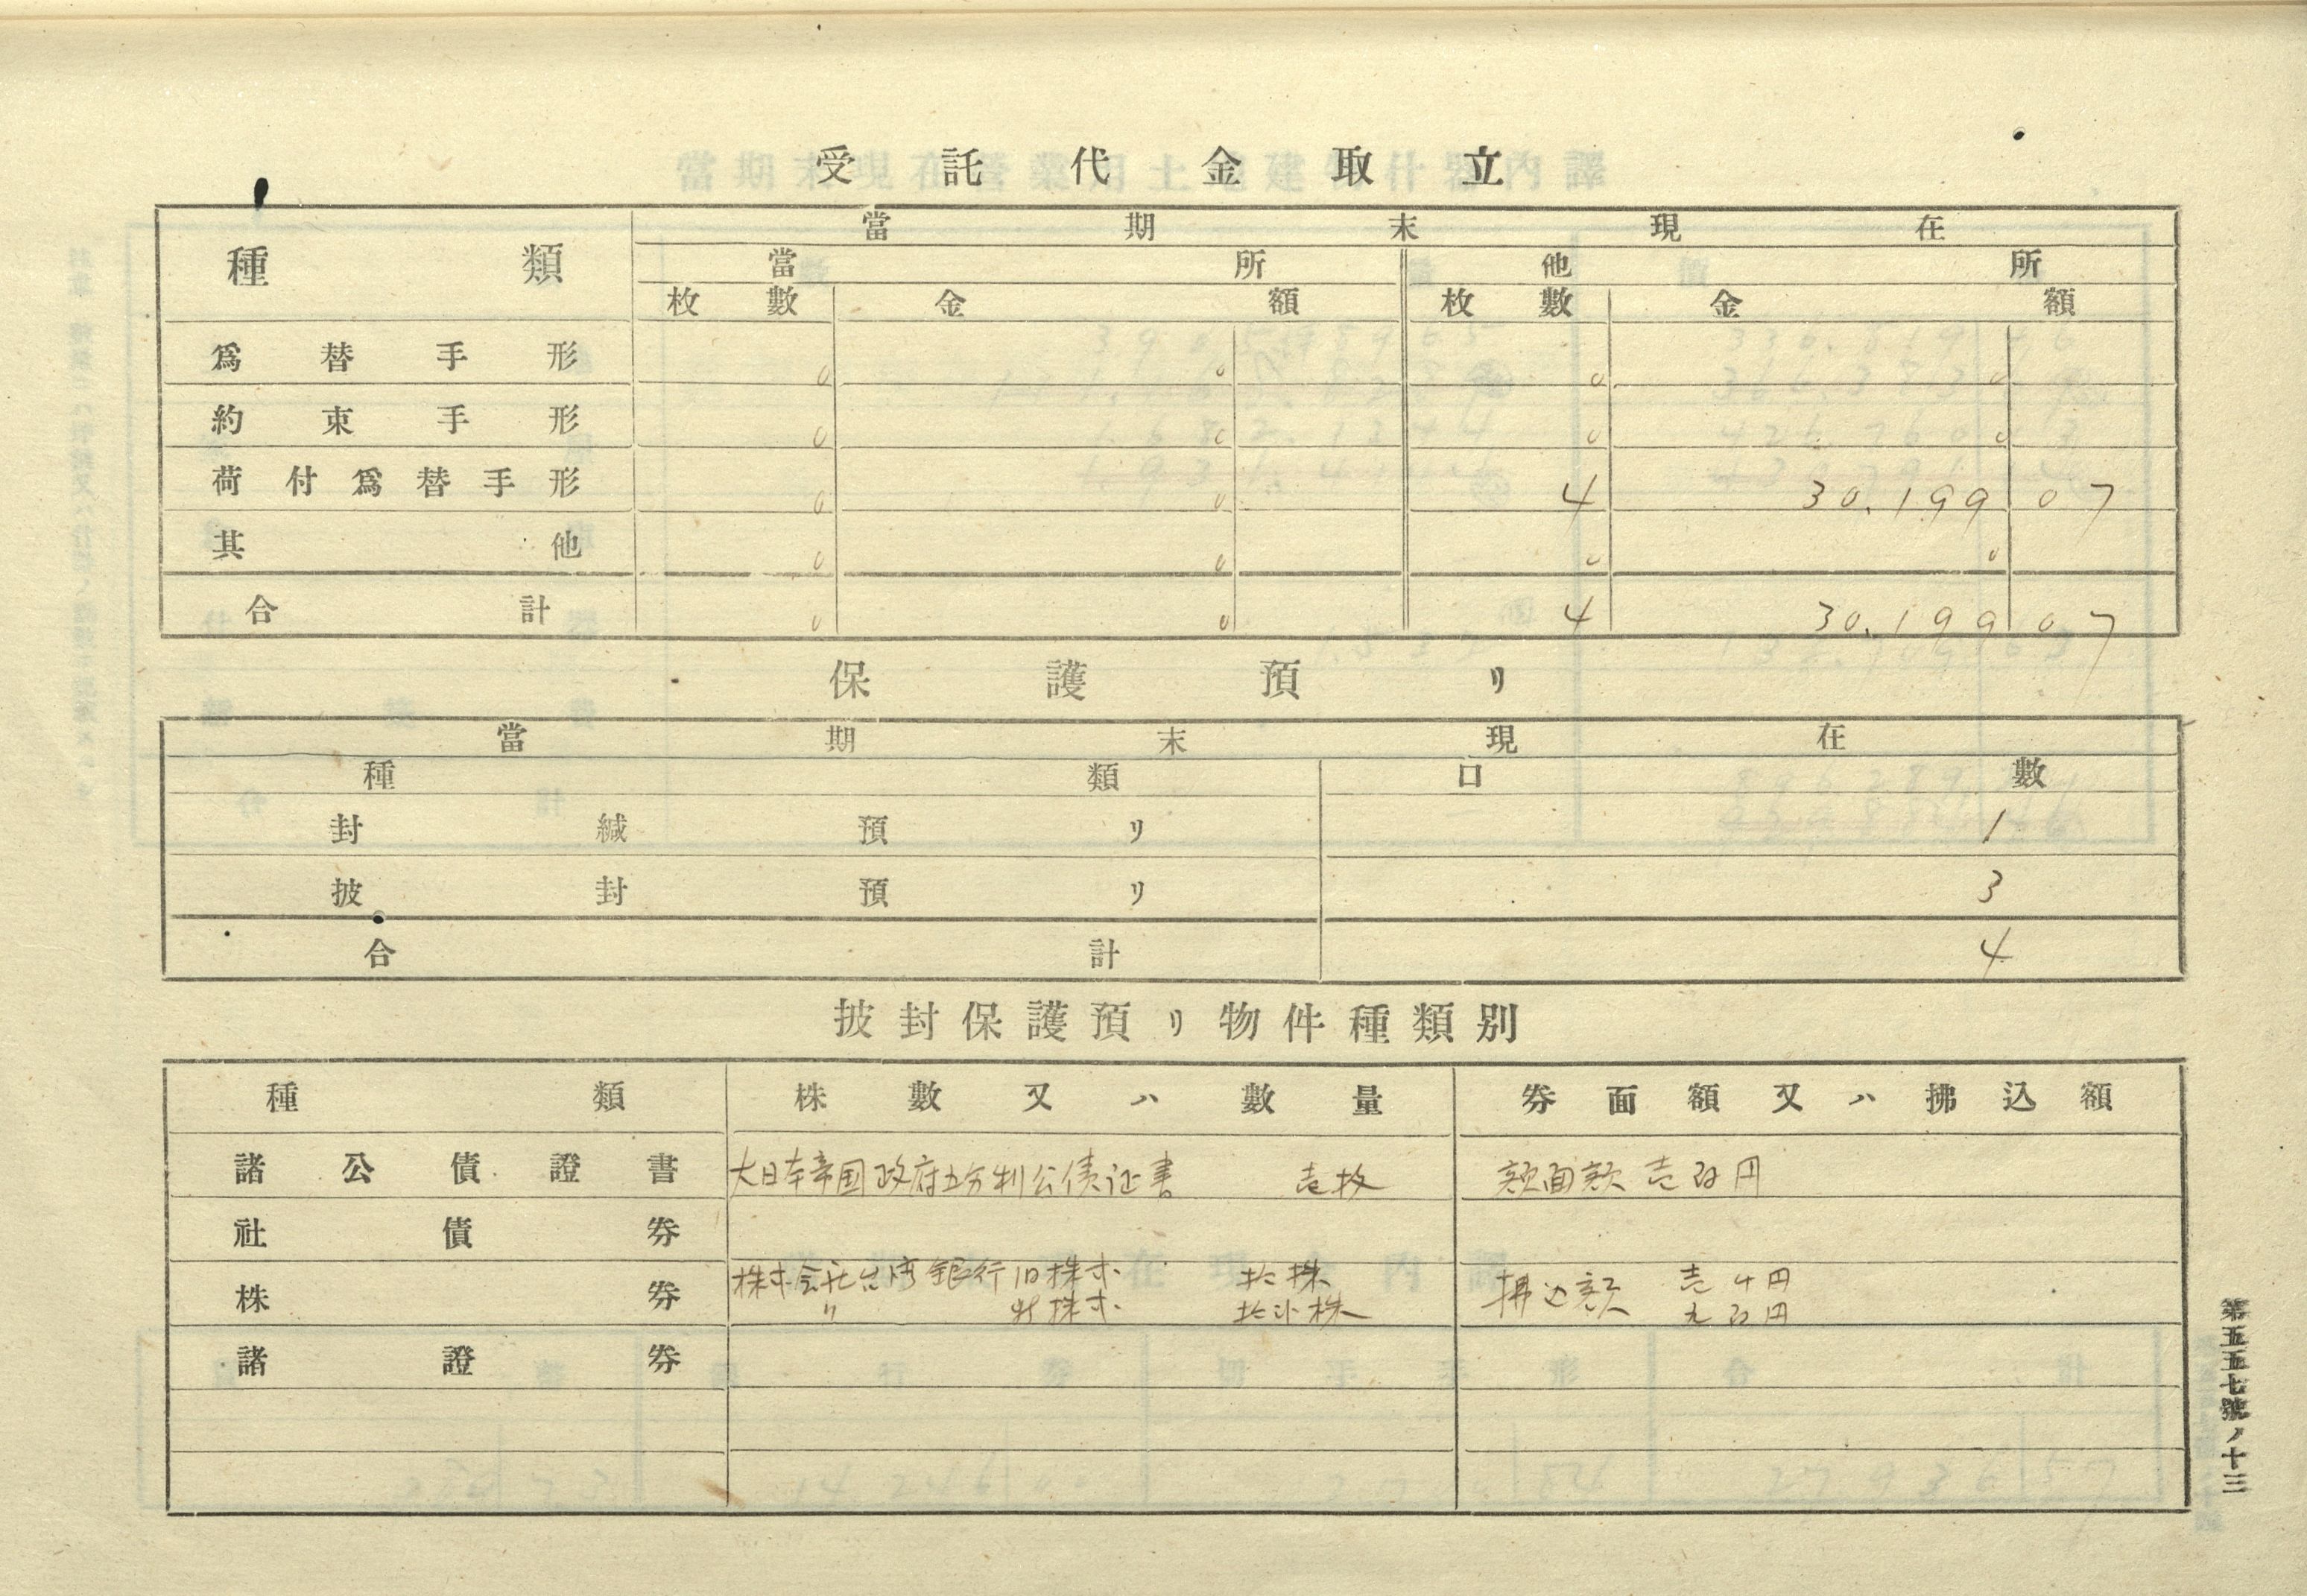 受託代金取立
種類 當期末現在
當所 他所
枚數 金額 枚數 金額
爲替手形 0 0 0 0
約束手形 0 0 0 0
荷付爲替手形 0 0 4 30.199 07
其他 0 0 0 0
合計 0 0 4 30.199 07
保護預リ
當期末現在
種類 口數
封緘預リ 1
披封預リ 3
合計 4
披封保護預リ物件種類別
種類 株數又ハ數量 券面額又ハ拂込額
諸公債證書 大日本帝国政府五分利公債证書 壱枚 額面額 壱百円
社債券
株券 株式会社台湾銀行旧株式 拾株 拂込額 壱千円
〃 新株式 株 九百円
諸證券
第五五七號ノ十三